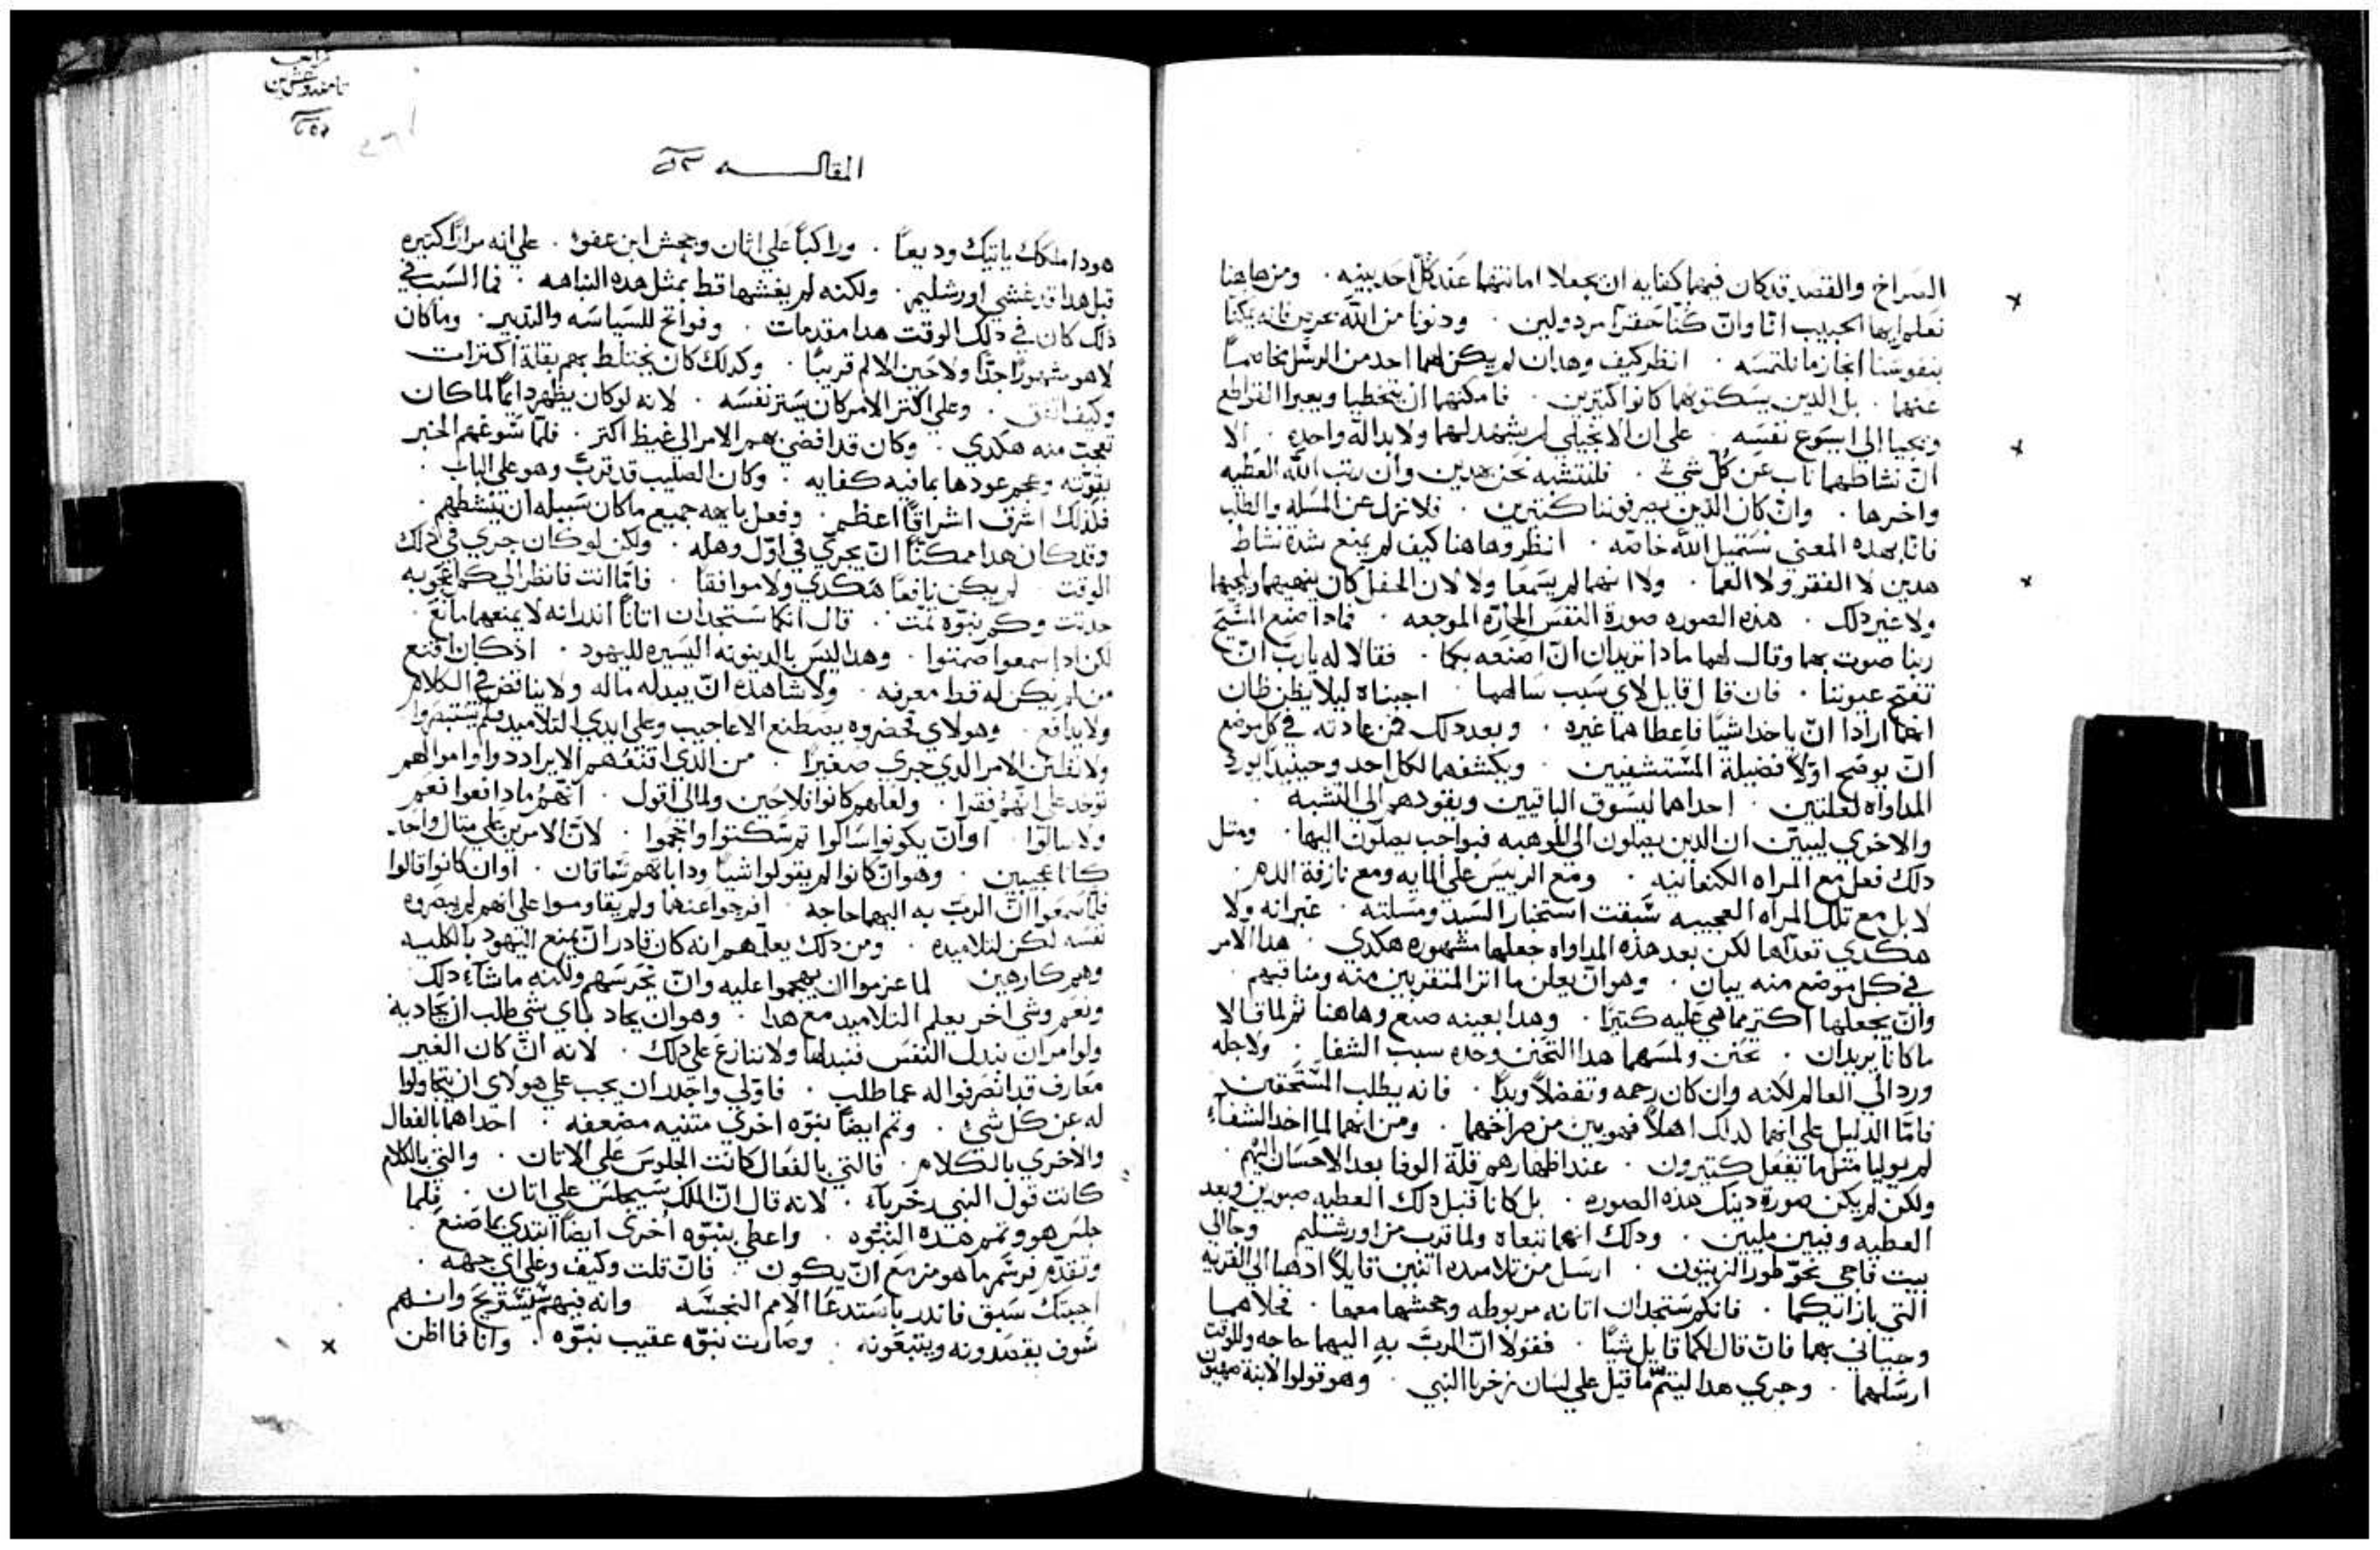 الصراخ والقصد قد كان فيهما كفايه ان يجعلا امانتهما عند كل احد بينه . ومن هاهنا
نعلم ايها الحبيب انّا وانّ كنّا حقرا مردولين . ودنونا من الله بحرص فانه يمكنا
بنفوسنا انجاز ما نلتمسه . انظر كيف وهدان لم يكن لهما احد من الرسل مخاصماً
عنهما . بل الدين يسكتونهما كانوا كتيرين . فامكنهما ان يتخطيا ويعبرا القواطع
ويجيا الي ايسوع نفسه . على ان الانجيلي لم يشهد لهما ولا بداله واحده . الا
انّ نشاطهما ناب عن كل شي . فلنتشبه نحن بهدين وان رتب الله العطيه
واخرها . وانّ كان الذين يصرفوننا كتيرين . فلا نزل عن المسله والطلب
فانّا بهده المعني نستميل الله خاصّه . انظر وهاهنا كيف لم يمنع شدة نشاط
هدين لا الفقر ولا العما . ولا انهما لم يسمعا ولا لان الحفل كان ينهيهما
ولا غير دلك . هذه الصوره صورة النفس الحارّه الموجعه . فمادا صنع المسيح
ربنا صوت بهما وقال لهما مادا تريدان انّ اصنعه بكما . فقالا له يا ربّ انّ
تفتح عيوننا . فان قال قايل لاي سبب سالهما . اجبناه ليلا يظن ظان
انهما ارادا انّ ياخدا شيّاً فاعطاهما غيره . وبعد دلك فمن عادته في كل موضع
انّ يوضح اوّلاً فضيلة المستشفيين . ويكشفهما لكل احد وحينيد يورد
المداواه لعلتين . احداهما ليسوق الباقيين ويقودهم الي التشبه .
والاخري ليبيّن ان الدين يصلون الى الموهبه فبواجب يصلون اليها . ومتل
دلك فعل مع المراه الكنعانيه . ومع الرييس علي المايه ومع نازفة الدم .
لا بل مع تلك المراه العجيبه سبقت استخبار السيد ومسلته . غير انه ولا
هكدي تعدّاها لكن بعد هذه المداواه جعلها مشهوره هكدي . هدا الامر
في كل موضع منه يبان . وهو انّ يعلن ماتر المتقربين منه ومناقبهم .
وانّ يجعلها اكتر مما هي عليه كتيراً . وهدا بعينه صنع وهاهنا ثم لما قالا
ما كانا يريدان . تحنن ولمسهما هدا التحنن وحده سبب الشفا . ولاجله
ورد الي العالم لكنه وان كان رحمه وتفضلاً وبدًا . فانه يطلب المستحقين
فامّا الدليل على انهما لدلك اهلاً فهو بيّن من صراخهما . ومن انهما لما اخدا الشفاء
لم يوليا متلما تفعل كتيرون . عند اظهارهم قلة الوفا بعد الاحسان اليهم .
ولكن لم يكن صورة دينك هده الصوره . بل كانا قبل دلك العطيه صبورين وبعد
العطيه وفيين مليين . ودلك انهما تبعاه ولما قرب من اورشليم وجا الي
بيت فاجي نحو طور الزيتون . ارسل من تلاميده اتنين قايلاً ادهبا الي القريه
التي بازايكما . فانكم ستجدان اتانه مربوطه وجحشها معها . فحلاهما
وجياني بهما فانّ قال لكما قايل شيّاً . فقولا انّ الربّ به اليهما حاجه وللوقت
ارسلهما . وجري هدا ليتمّ ما قيل علي لسان زخريا النبي . وهو قولوا لابنة صهيون
المقالـــــه
هودا ملكك ياتيك وديعاً . وراكباً علي اتان وجحش ابن عفو . علي انه مراراً كتيره
قبل هدا قد غشي اورشليم . ولكنه لم يغشها قط بمثل هده النباهه . فما السبب في
ذلك كان في دلك الوقت هدا مقدمات . وفواتح للسياسه والتدبير . وما كان
لا هو مشهوراً جدّاً ولا حين الالم قريباً . وكدلك كان يختلط بهم بقلة اكترات
وكيف اتفق . وعلي اكتر الامر كان يستر نفسه . لانه لو كان يظهر دايماً لما كان
تعجب منه هكدي . وكان قد افضي بهم الامر الي غيظ اكتر . فلمّا سوغهم الخبر
بقوّته وعجم عودها بما فيه كفايه . وكان الصليب قد قربّ وهو علي الباب .
فلدلك اشرق اشراقاً اعظم . وفعل بابهه جميع ما كان سبيله ان ينشطهم .
وقد كان هدا ممكنّاً انّ يجري في اوّل وهله . ولكن لو كان جري في دلك
الوقت لم يكن نافعاً هكدي ولا موافقاً . فامّا انت فانظر الي كم اعجوبه
حدتت وكم نبوّه تمّت . قال انكما ستجدان اتاناً اندر انه لا يمنعهما مانع .
لكن ادا سمعوا صمتوا . وهدا ليس بالدينونه اليسيره لليهود . اد كان اقنع
من لم يكن له قط معرفه . ولا شاهده انّ يبدل ماله ولا يناقض في الكلام
ولا يدافع . وهولاي تحضروه يصطنع الاعاجيب وعلي ايدي التلاميد فلم يستبصروا
ولا تظن الامر الدي جري صغيراً . من الدي اقنعهم الا يرادّدوا واموالهم
توخد علي انهم فقرا . ولعلهم كانوا فلاحين ولمالي اقول . انهم ما دافعوا نعم
ولا سالوا . او انّ يكونوا سالوا تم سكتوا واحجموا . لانّ الامرين علي متال واحد
كانا عجيبين . وهو انّ كانوا لم يقولوا شيّاً ودابّاتهم تساقان . او ان كانوا قالوا
فلمّا سمعوا انّ الربّ به اليهما حاجه . افرجوا عنهما ولم يقاوموا على انهم لم يبصروه
نفسه لكن لتلاميده . ومن دلك يعلّمهم انه كان قادر انّ يمنع اليهود بالكليه
وهم كارهين لما عزموا ان يهجموا عليه وانّ يخرسهم ولكنه ما شاء دلك
ونعم وشي اخر يعلم التلاميد مع هدا . وهو ان يجاد باي شي طلب ان يجاد به
ولو امر ان نبدل النفس فنبدلها ولا ننازع علي دلك . لانه انّ كان الغير
معارف قد انصرفوا له عما طلب . فاولي واجدر ان يجب علي هولاي ان يتجاولوا
له عن كل شي . وتم ايضاً نبوّه اخري متنيه مضعفه . احداهما بالفعال
والاخري بالكلام . فالتي بالفعال كانت الجلوس علي الاتان . والتي بالكلام
كانت قول النبي زخرياء . لانه قال انّ الملك سيجلس علي اتان . فلما
جلس هو وتمم هده النبوه . واعطي بنبوّه اخري ايضاً ابتدي بما صنع .
وتقدّم فرسم ما هو مزمع انّ يكون . فانّ قلت وكيف وعلي اي جهه .
اجبتك سبق فاندر باستدعا الامم النجسه وانه فيهم يستريح وانهم
سوف يقصدونه ويتبعونه . وصارت نبوّه عقيب نبوّه . وانا فما اظن